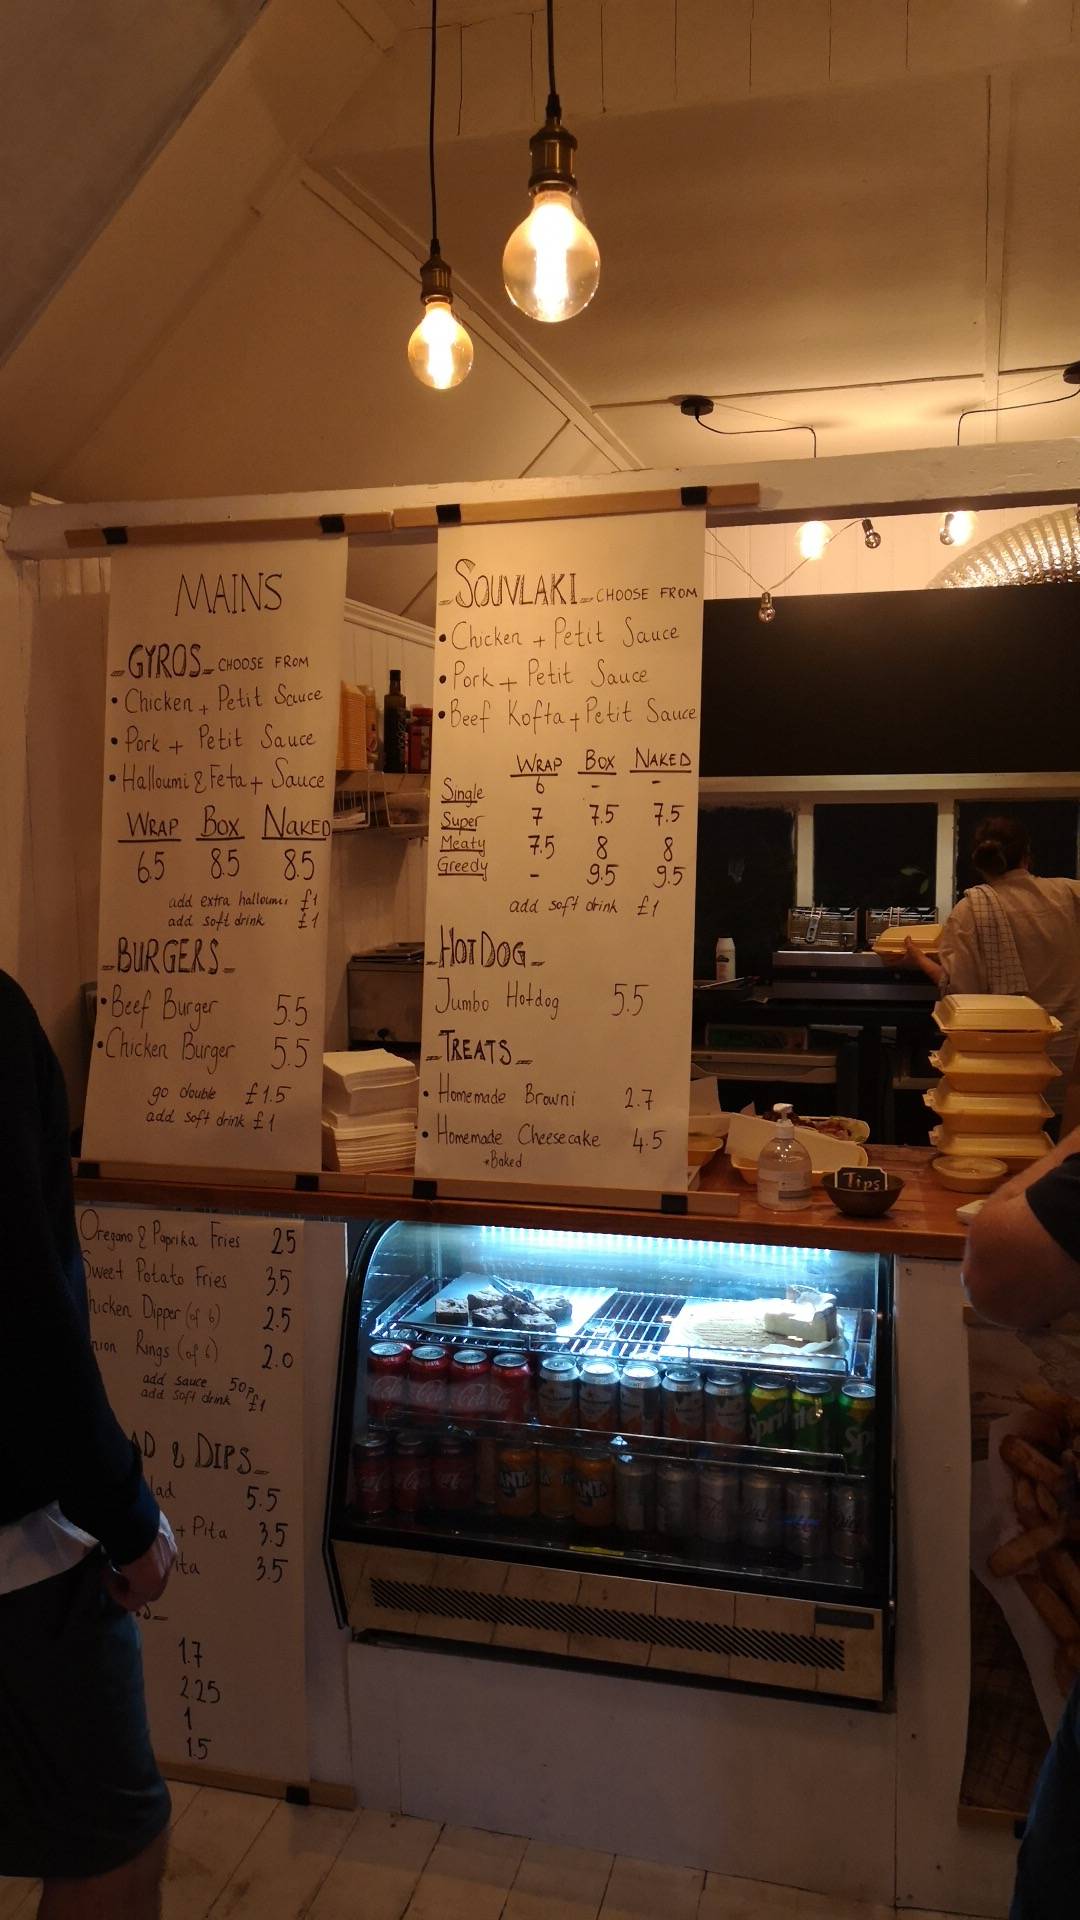 MAINS
GYROS CHOOSE FROM
• Chicken + Petit Sauce
• Pork + Petit Sauce
• Halloumi & Feta + Sauce
WRAP BOX NAKED
6.5 8.5 8.5
add extra halloumi £1
add soft drink £1
BURGERS
• Beef Burger 5.5
• Chicken Burger 5.5
go double £1.5
add soft drink £1
SOUVLAKI CHOOSE FROM
• Chicken + Petit Sauce
• Pork + Petit Sauce
• Beef Kofta + Petit Sauce
WRAP BOX NAKED
Single 6 - -
Super 7 7.5 7.5
Meaty 7.5 8 8
Greedy - 9.5 9.5
add soft drink £1
HOT DOG
Jumbo Hotdog 5.5
TREATS
• Homemade Browni 2.7
• Homemade Cheesecake 4.5
*Baked
Tips
Oregano & Paprika Fries 2.5
Sweet Potato Fries 3.5
hicken Dipper (of 6) 2.5
nion Rings (of 6) 2.0
add sauce 50p
add soft drink £1
AD & DIPS
lad 5.5
+ Pita 3.5
ita 3.5
1.7
2.25
1
1.5
Coca-Cola
Sprite
FANTA